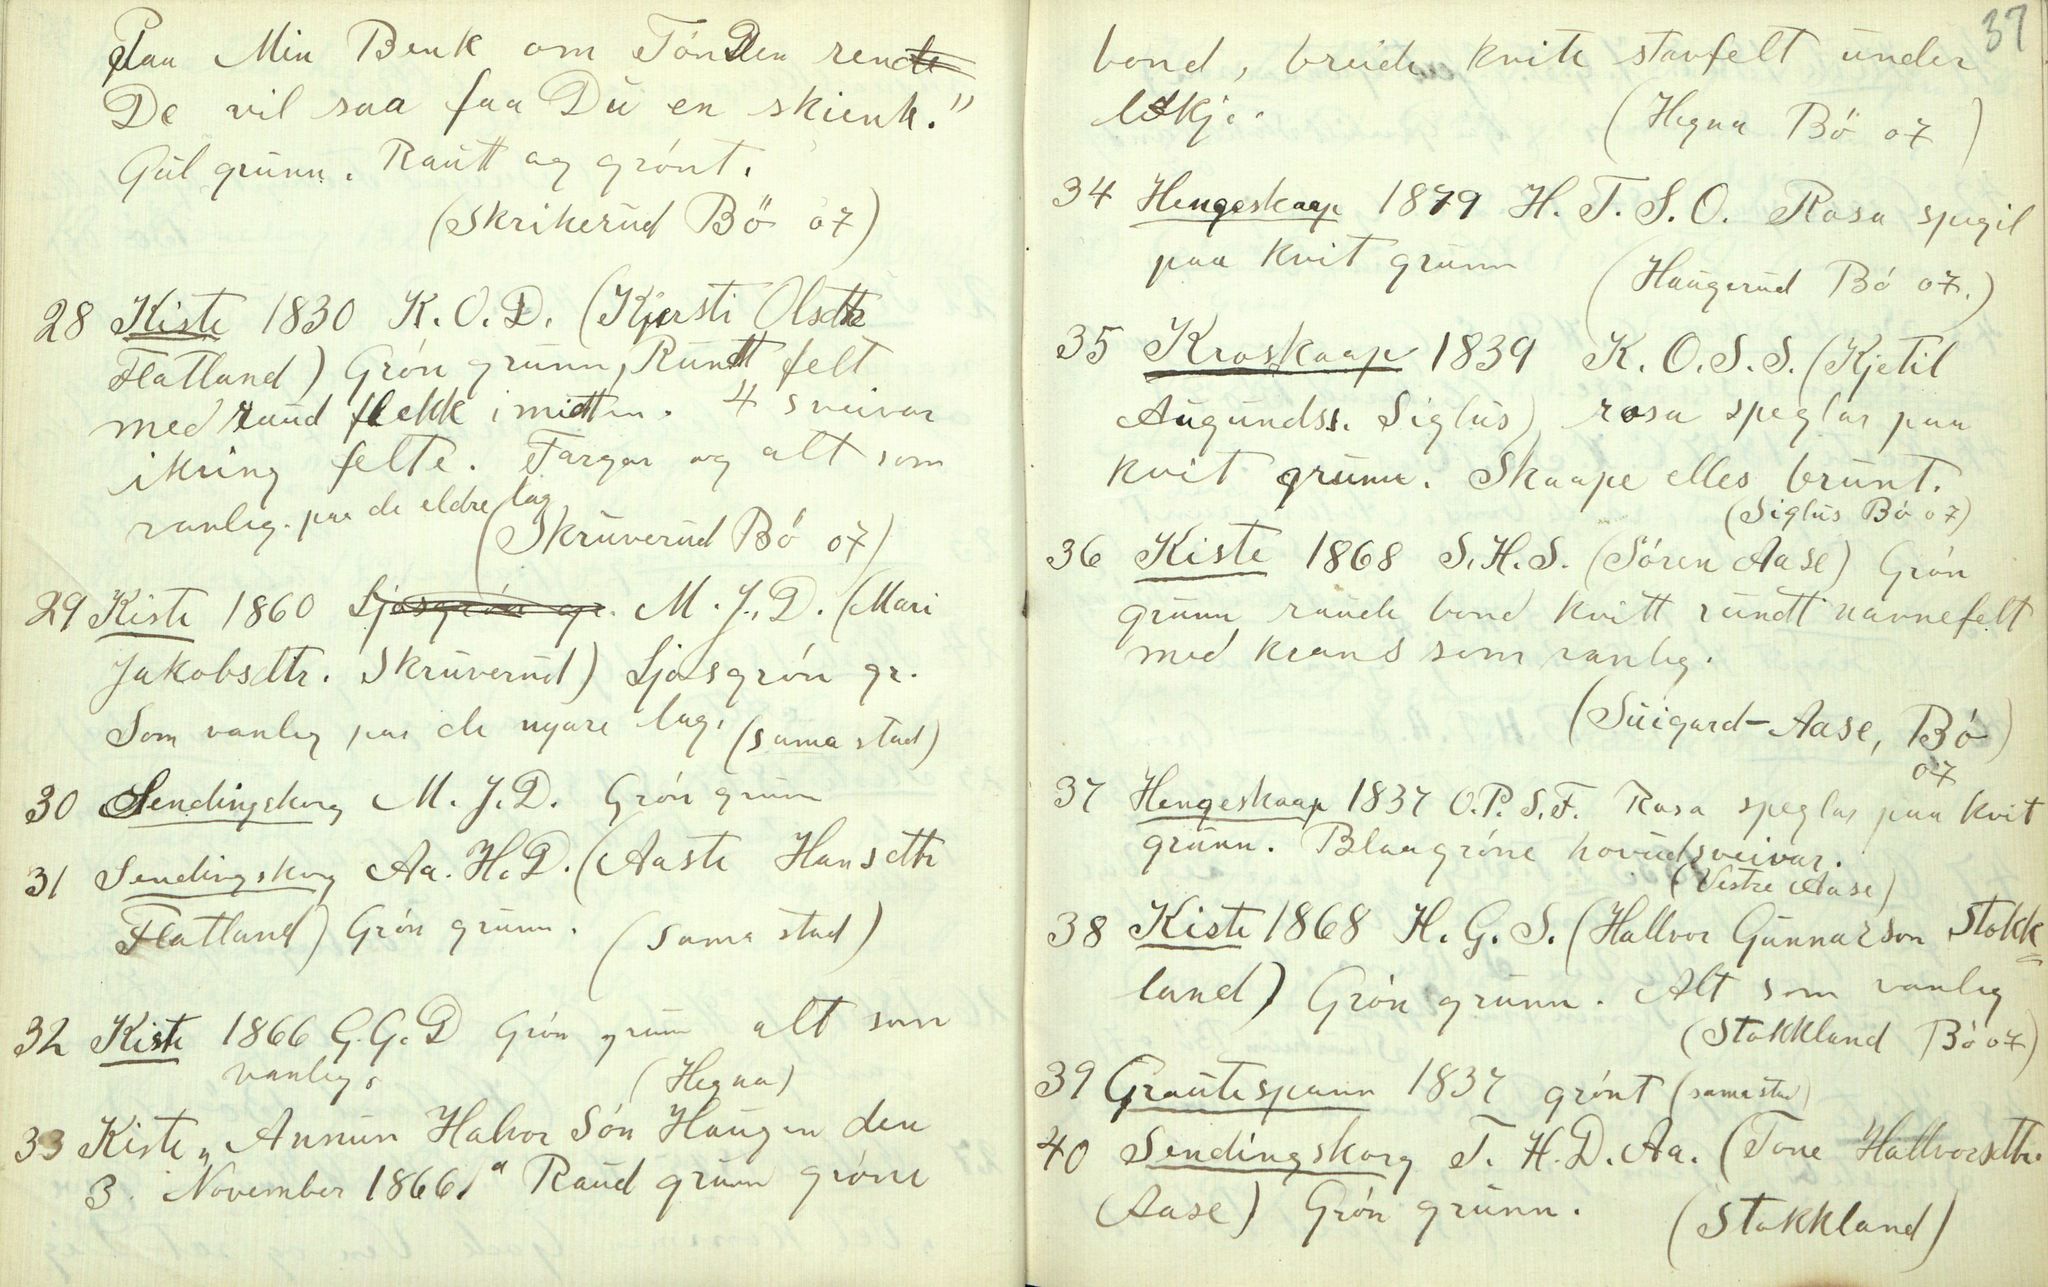 Paa Min Benk om TönDen rendte
De vil saa faa Du en skienk."
Gul grunn. Rautt og grónt.
(Skrikerud Bö 07)
28 Kiste 1830 K. O. D. (Kjersti Olsdtr
Flatland) Grón grunn, Rundt felt
med raud flekk i midten. 4 sveivar
ikring felte. Fargar og alt som
vanleg. paa de eldre lag
(Skruverud Bó 07)
29 Kiste 1860 Ljosgrón gr. M. J. D. (Mari
Jakobsdtr. Skruverud) Ljosgrón gr.
Som vanleg paa de nyare lag. (sama stad)
30 Sendingskorg M. J. D. Grón grunn
31 Sendingskorg Aa. H. D. (Aaste Hansdtr
Flatland) Grón grunn. (sama stad)
32 Kiste 1866 G. G. D Grón grunn alt som
vanleg. (Hegna)
33 Kiste „Annun Halvor Són Haugen den
3. November 1866." Raud grunn gróne
37
bond, breide kvite stavfelt under
lokje. (Hegna Bö 07)
34 Hengeskaap 1879 H. T. S. O. Rosa spegil
paa kvit grunn (Haugerud Bó 07.)
35 Kroskaap 1839 K. O. S. S. (Kjetil
Augundss. Siglus) rosa speglar paa
kvit grunn. Skaape elles brunt.
(Siglus Bó 07)
36 Kiste 1868 S. H. S. (Sóren Aase) Grón
grunn raude bond kvitt rundtt navnefelt
med krans som vanleg.
(Suigard-Aase, Bó
07)
37 Hengeskaap 1837 O. P. S. F. Rosa speglar paa kvit
grunn. Blaagróne hovudsveivar.
(Vestre Aase)
38 Kiste 1868 H. G. S. (Hallvor Gunnarson Stokk=
land) Grón grunn. Alt som vanleg
(Stokkland Bó 07)
39 Grautespann 1837 grónt (sama stad)
40 Sendingskorg T. H. D. Aa. (Tone Hallvorsdtr.
Aase) Grón grunn. (Stokkland)